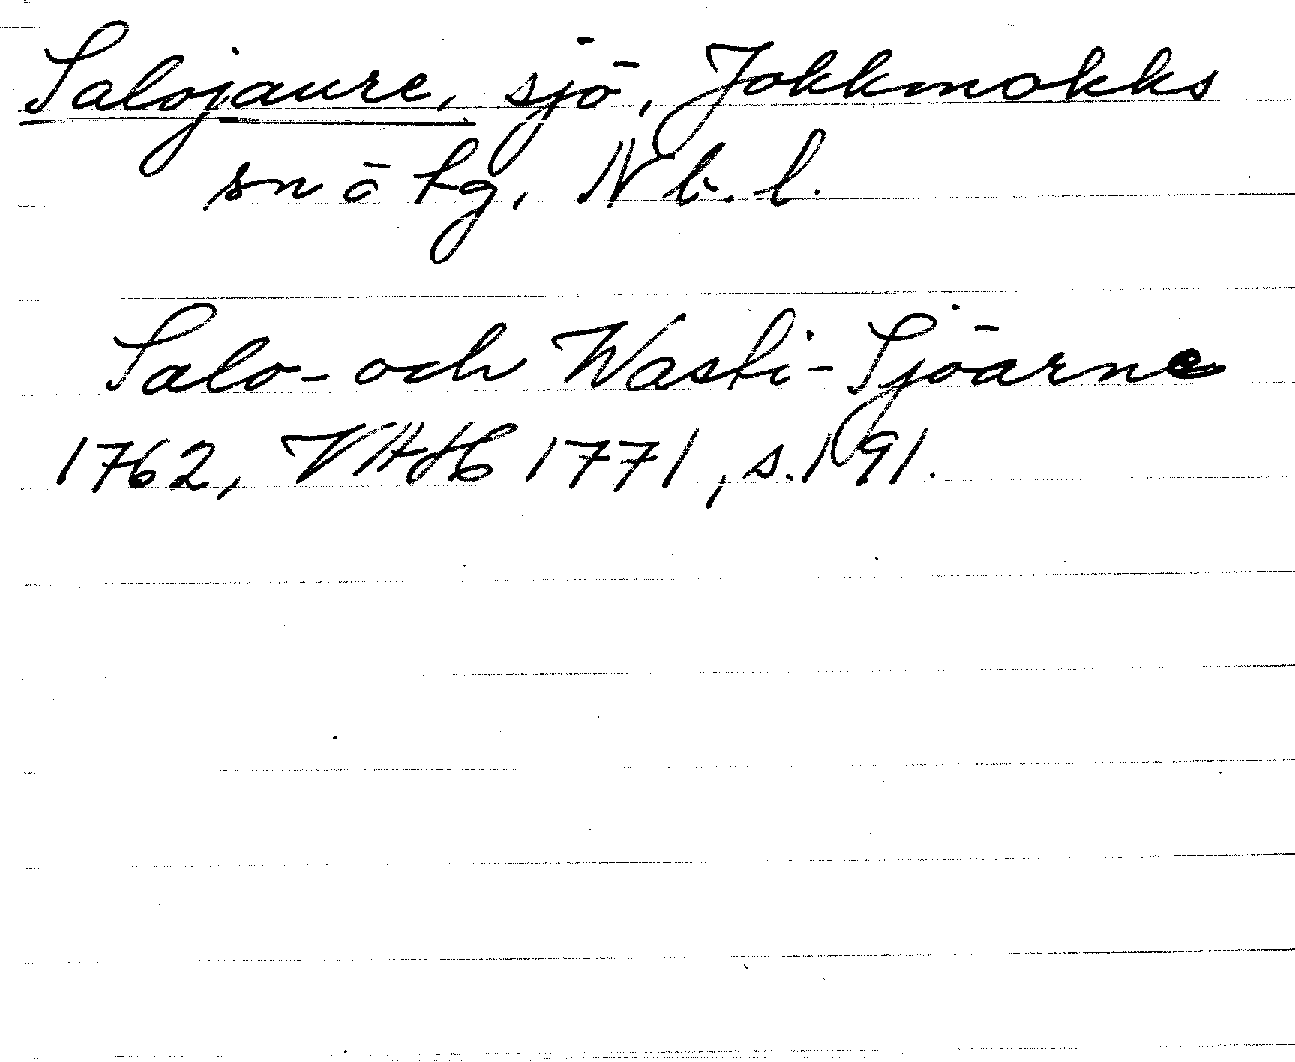 Salojaure, sjö, Jokkmokks
sn o tg, Nb. l.
Salo- och Wasti-Sjöarne
1762, VAH 1771, s. 191.